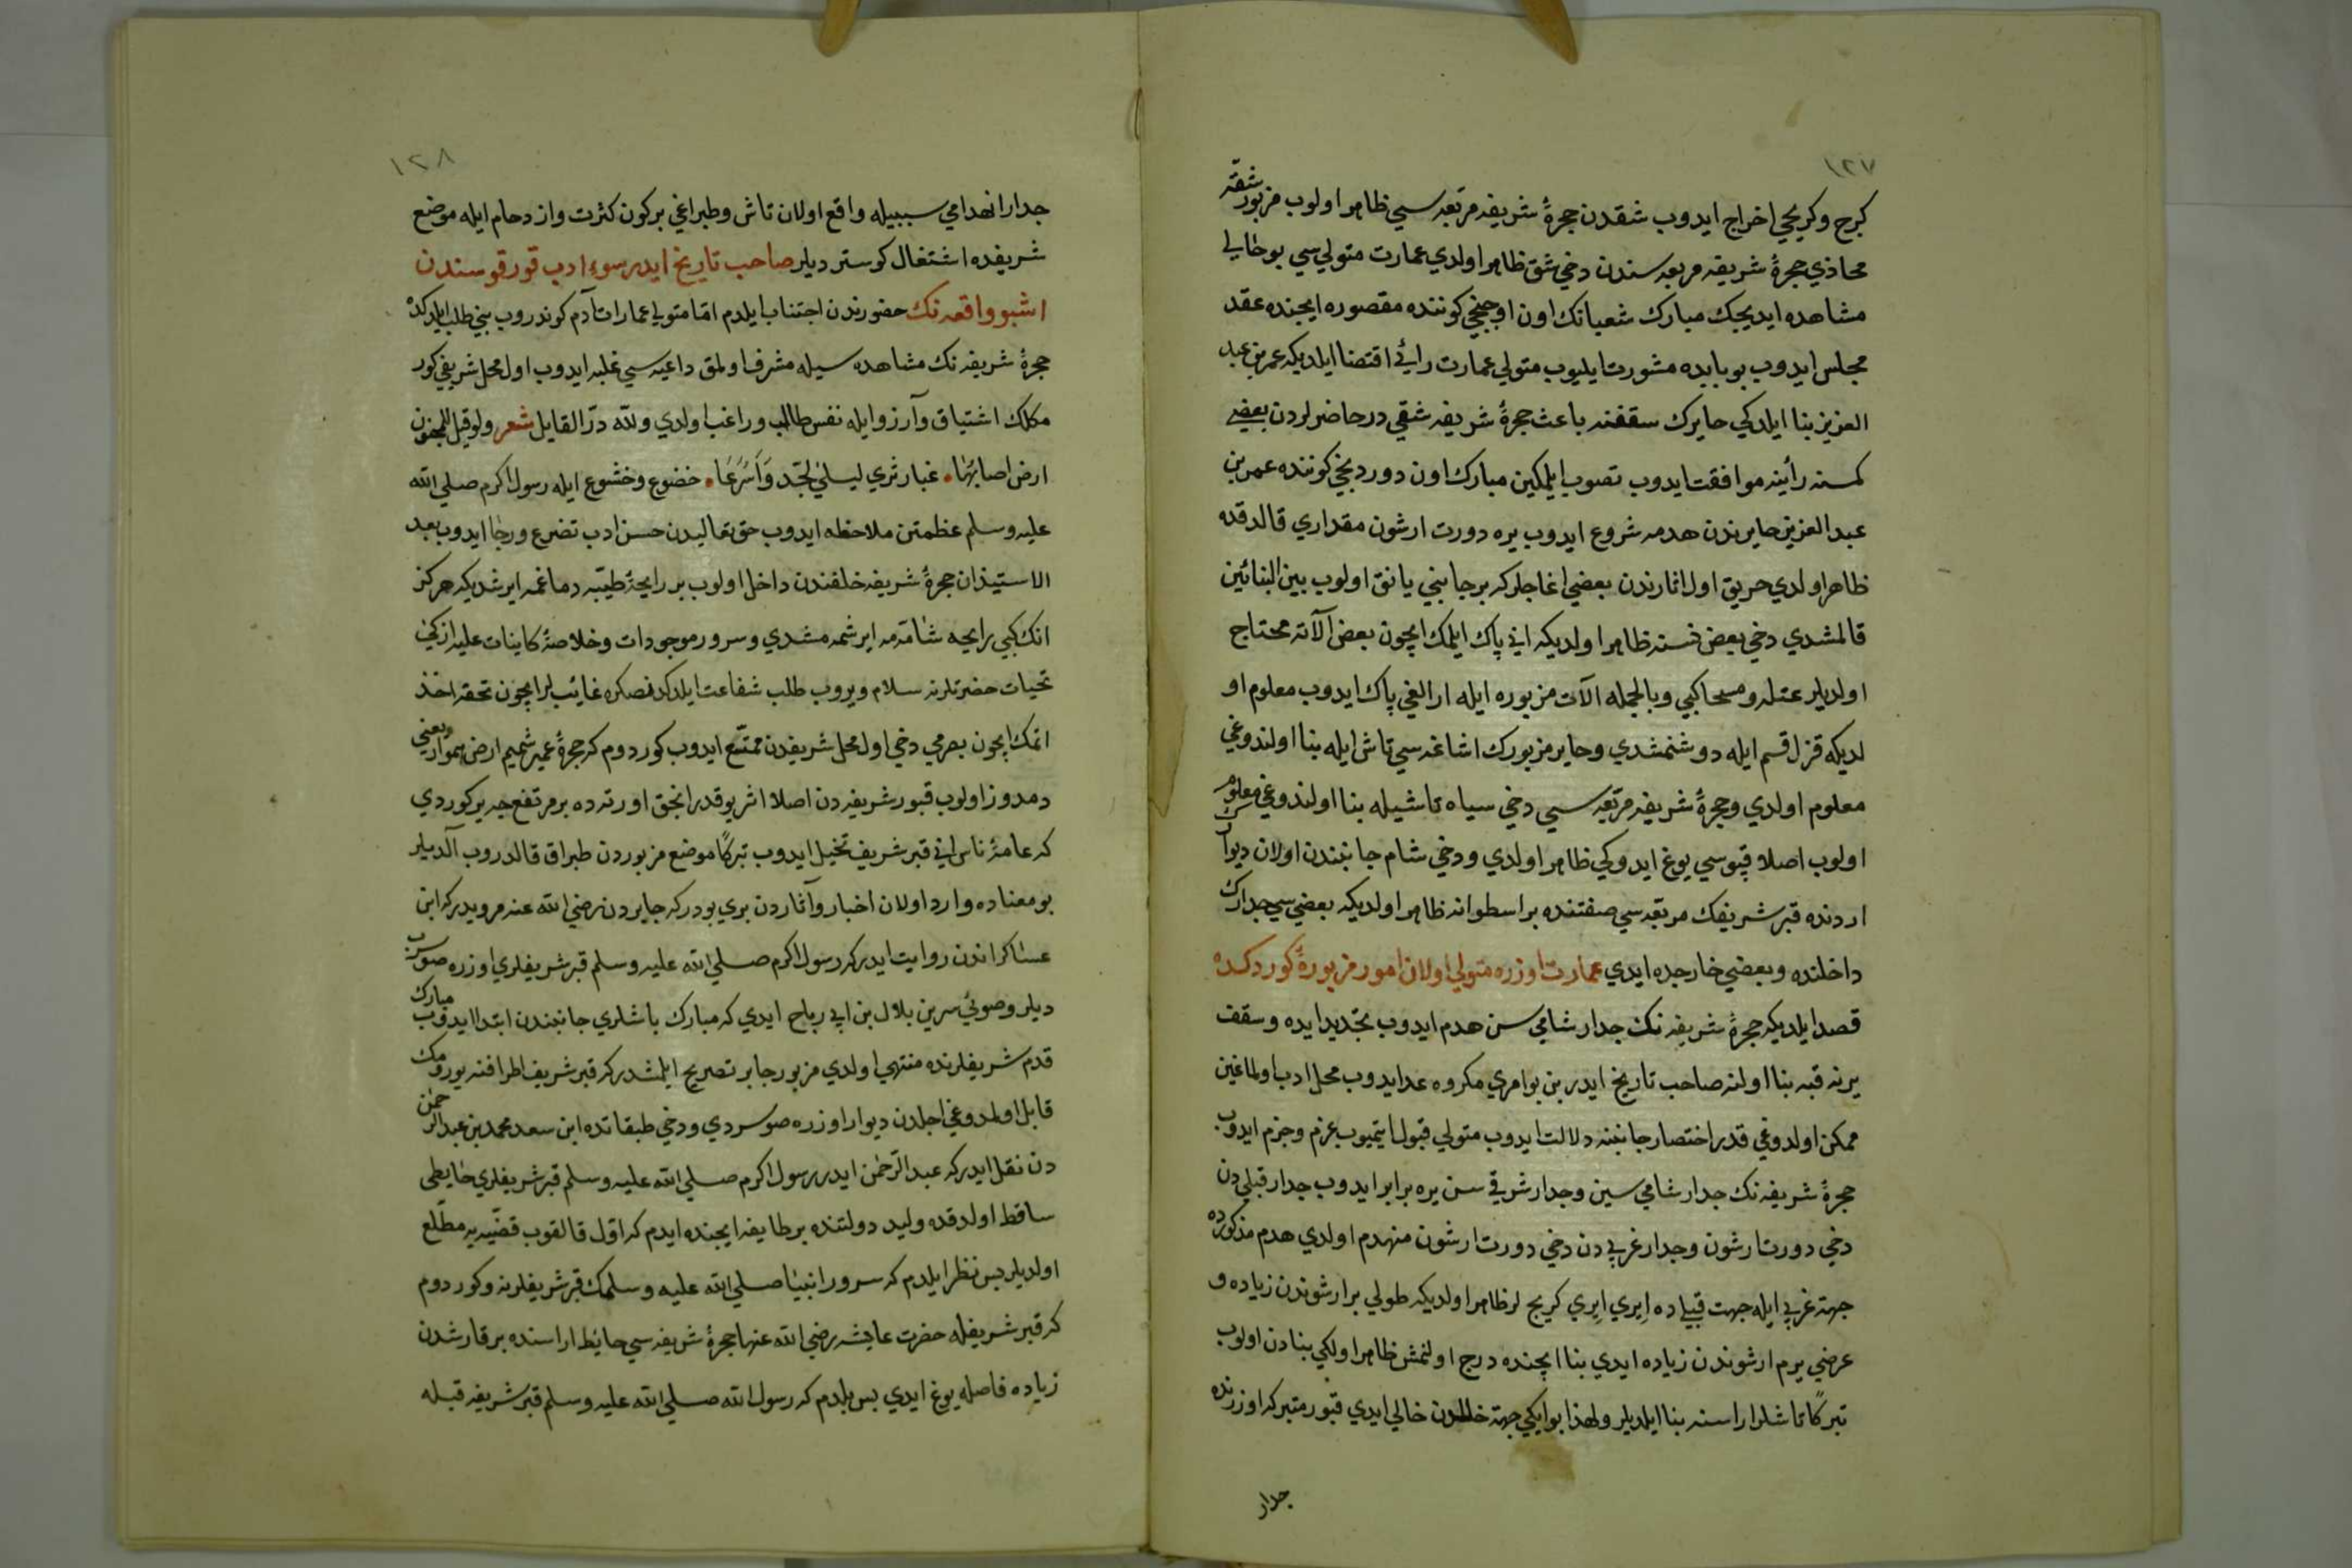 ١٢٧
كرج وكريجي اخراج ايدوب شقدن حجرۀ شريفه مربعه سي ظاهر اولوب مزبور شقه
محاذي حجرۀ شريفه مربعه سندن دخي شق ظاهر اولدي عمارت متولي سي بو حالي
مشاهده ايديجك مبارك شعبانك اون اوچنجي كوننده مقصوره ايچنده عقد
مجلس ايدوب بو بابده مشورت ايليوب متولي عمارت رائي اقتضا ايلديكه عمر بن عبد
العزيز بنا ايلدكي حايرك سقفنه باعث حجرۀ شريفه شقي در حاضرلردن بعضي
كمسنه رأينه موافقت ايدوب تصويب ايلمكين مبارك اون دوردنجي كوننده عمر بن
عبد العزيز حايرندن هدمه شروع ايدوب يره دورت ارشون مقداري قالدقده
ظاهر اولدي حريق اول اثارندن بعضي اغاجلر كه بر جانبي يانق اولوب بين البنائين
قالمشدي دخي بعض نسنه ظاهر اولديكه اني پاك ايلمك ايچون بعض آلاته محتاج
اولديلر عتله ومسحا كبي وبالجمله آلات مزبوره ايله ارالغي پاك ايدوب معلوم او
لديكه قزل قسم ايله دوشنمشدي وحاير مزبورك اشاغه سي تاش ايله بنا اولندوغي
معلوم اولدي وحجرۀ شريفه مربعه سي دخي سياه تاشيله بنا اولندوغي معلوم
اولوب اصلا قپوسي يوغ ايدوكي ظاهر اولدي ودخي شام جانبندن اولان ديوار
اردنده قبر شريفك مربعه سي صفتنده بر اسطوانه ظاهر اولديكه بعضي سي جدارك
داخلنده وبعضي خارجده ايدي عمارت اوزره متولي اولان امور مزبورۀ كوردكده
قصد ايلديكه حجرۀ شريفه نك جدار شامي سن هدم ايدوب تجديد ايده وسقف
يرنه قبه بنا اولنه صاحب تاريخ ايدر بن بو امري مكروه عد ايدوب محل ادب اولماغين
ممكن اولدوغي قدر اختصار جانبنه دلالت ايدوب متولي قبول ايتميوب عزم وجزم ايدوب
حجرۀ شريفه نك جدار شامي سين وجدار شرقي سن يره برابر ايدوب جدار قبلي دن
دخي دورت ارشون وجدار غربي دن دخي دورت ارشون منهدم اولدي هدم مذكورده
جهة غربي ايله جهت قبلي ده ايري ايري كريج لر ظاهر اولديكه طولي بر ارشوندن زياده و
عرضي يرم ارشوندن زياده ايدي بنا ايچنده درج اولنمش ظاهر اولكي بنادن اولوب
تبركًا تاشلر اراسنه بنا ايلديلر ولهذا بو ايكي جهة خللدن خالي ايدي قبور متبركه اوزرنده
جدار
١٢٨
جدار انهدامي سببيله واقع اولان تاش وطبراغي بر كون كثرت وازدحام ايله موضع
شريفده اشتغال كوستر ديلر صاحب تاريخ ايدر سوء ادب قورقوسندن
اشبو واقعه نك حضورندن اجتناب ايلدم اما متولي عمارات آدم كوندروب بني طلب ايلدكده
حجرۀ شريفه نك مشاهده سيله مشرف اولمق داعيه سي غلبه ايدوب اول محل شريفي كور
مكلك اشتياق وآرزو ايله نفس طالب وراغب اولدي ولله در القايل شعر ولو قيل للمجنون
ارض اصابها٠ غبار ثري ليلي لجد وأسرعا٠ خضوع وخشوع ايله رسول اكرم صلي الله
عليه وسلم عظمتن ملاحظه ايدوب حق تعاليدن حسن ادب تضرع ورجا ايدوب بعد
الاستيذان حجرۀ شريفه خلفندن داخل اولوب بر رايحۀ طيبه دماغمه ايرشديكه هركز
انك كبي رايحه شامّه مه ايرشمه مشدي وسرور موجودات وخلاصۀ كاينات عليه ازكي
تحيات حضرتلرنه سلام ويروب طلب شفاعت ايلدكدنصكره غائب لر ايچون تحفه اخذ
اتمك ايچون بصرمي دخي اول محل شريفدن ممتع ايدوب كوردوم كه حجرۀ عبير شميم ارض هموار يعني
دمدوز اولوب قبور شريفه دن اصلا اثر يوقدر انجق اورته ده بر مرتفع جه ير كوردي
كه عامۀ ناس اني قبر شريف تخيل ايدوب تبركًا موضع مزبوردن طبراق قالدروب آلديلر
بو معناده وارد اولان اخبار وآثاردن بري بودر كه جابردن رضي الله عنه مرويدر كه ابن
عساكر اندن روايت ايدر كه رسول اكرم صلي الله عليه وسلم قبر شريفلري اوزره صو سرپ
ديلر وصوئي سرپن بلال بن ابي رباح ايدي كه مبارك باشلري جانبندن ابتدا ايدوب مبارك
قدم شريفلرنده منتهي اولدي مزبور جابر تصريح ايلمشدر كه قبر شريف اطرافنه يورومك
قابل اولمدوغي اجلدن ديوار اوزره صو سردي ودخي طبقاتده ابن سعد محمد بن عبد الرحمن
دن نقل ايدر كه عبد الرحمن ايدر رسول اكرم صلي الله عليه وسلم قبر شريفلري حايطي
ساقط اولدقده وليد دولتنده بر طايفه ايچنده ايدم كه اول قالقوب قضيه يه مطلع
اولديلر بس نظر ايلدم كه سرور انبيا صلي الله عليه وسلمك قبر شريفلرنه وكوردوم
كه قبر شريفله حضرت عايشه رضي الله عنها حجرۀ شريفه سي حايط اراسنده بر قارشدن
زياده فاصله يوغ ايدي بس بلدم كه رسول الله صلي الله عليه وسلم قبر شريفه قبله